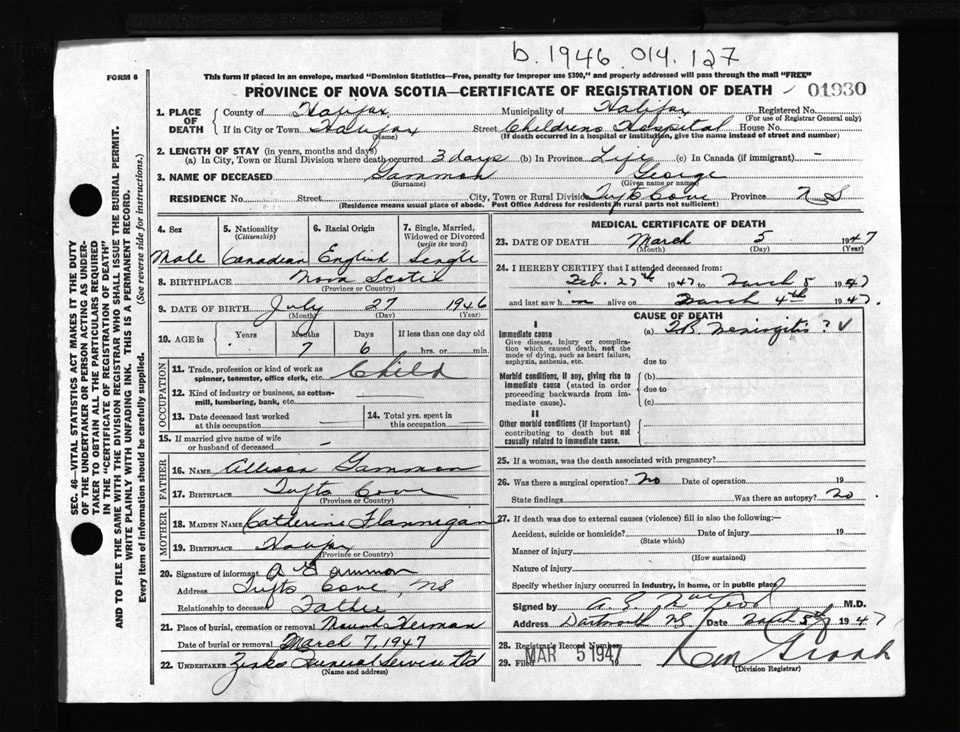 b. 1946 014.127
FORM 6
This form if placed in an envelope, marked "Dominion Statistics—Free, penalty for improper use $300," and properly addressed will pass through the mail "FREE"
PROVINCE OF NOVA SCOTIA—CERTIFICATE OF REGISTRATION OF DEATH 01930
1. PLACE OF DEATH
County of Halifax Municipality of Halifax Registered No.
(For use of Registrar General only)
If in City or Town Halifax Street Childrens Hospital House No.
(Name) (If death occurred in a hospital or institution, give the name instead of street and number)
2. LENGTH OF STAY (in years, months and days)
(a) In City, Town or Rural Division where death occurred 3 days (b) In Province Life (c) In Canada (if immigrant) -
3. NAME OF DECEASED Gammon George
(Surname) (Given name or names)
RESIDENCE No. Street City, Town or Rural Division Tufts Cove Province N S
(Residence means usual place of abode. Post Office Address for residents in rural parts not sufficient)
4. Sex 5. Nationality (Citizenship) 6. Racial Origin 7. Single, Married, Widowed or Divorced (write the word)
Male Canadian English Single
8. BIRTHPLACE Nova Scotia
(Province or Country)
9. DATE OF BIRTH July 27 1946
(Month) (Day) (Year)
10. AGE in Years Months Days If less than one day old
7 6 hrs. or min.
OCCUPATION
11. Trade, profession or kind of work as spinner, teamster, office clerk, etc. Child
12. Kind of industry or business, as cotton-mill, lumbering, bank, etc.
13. Date deceased last worked at this occupation 14. Total yrs. spent in this occupation
15. If married give name of wife or husband of deceased -
FATHER
16. NAME Allison Gammon
17. BIRTHPLACE Tufts Cove
(Province or Country)
MOTHER
18. MAIDEN NAME Catherine Flannigan
19. BIRTHPLACE Halifax
(Province or Country)
20. Signature of informant A Gammon
Address Tufts Cove, NS
Relationship to deceased Father
21. Place of burial, cremation or removal Mount Herman
Date of burial or removal March 7, 1947
22. UNDERTAKER Zinks Funeral Service Ltd
(Name and address)
MEDICAL CERTIFICATE OF DEATH
23. DATE OF DEATH March 5 1947
(Month) (Day) (Year)
24. I HEREBY CERTIFY that I attended deceased from:
Feb. 27th 1947 to March 5 1947
and last saw him alive on March 4th 1947.
CAUSE OF DEATH
I
Immediate cause (a) T.B. Meningitis ?
Give disease, injury or complication which caused death, not the mode of dying, such as heart failure, asphyxia, asthenia, etc. due to
Morbid conditions, if any, giving rise to immediate cause (stated in order proceeding backwards from immediate cause). (b) due to (c)
II
Other morbid conditions (if important) contributing to death but not causally related to immediate cause.
25. If a woman, was the death associated with pregnancy?
26. Was there a surgical operation? No Date of operation 19
State findings Was there an autopsy? No
27. If death was due to external causes (violence) fill in also the following:—
Accident, suicide or homicide? Date 19
(State which)
Manner of injury
(How sustained)
Nature of injury
Specify whether injury occurred in industry, in home, or in public place
Signed by M.D.
Address Dartmouth N.S. Date March 5th 1947
28. Registrar's Record Number
29. Filed MAR 5 1947
(Division Registrar)
SEC. 46—VITAL STATISTICS ACT MAKES IT THE DUTY
OF THE UNDERTAKER OR PERSON ACTING AS UNDER-
TAKER TO OBTAIN ALL THE PARTICULARS REQUIRED
IN THE "CERTIFICATE OF REGISTRATION OF DEATH"
AND TO FILE THE SAME WITH THE DIVISION REGISTRAR WHO SHALL ISSUE THE BURIAL PERMIT.
WRITE PLAINLY WITH UNFADING INK. THIS IS A PERMANENT RECORD.
Every item of information should be carefully supplied. (See reverse side for instructions.)